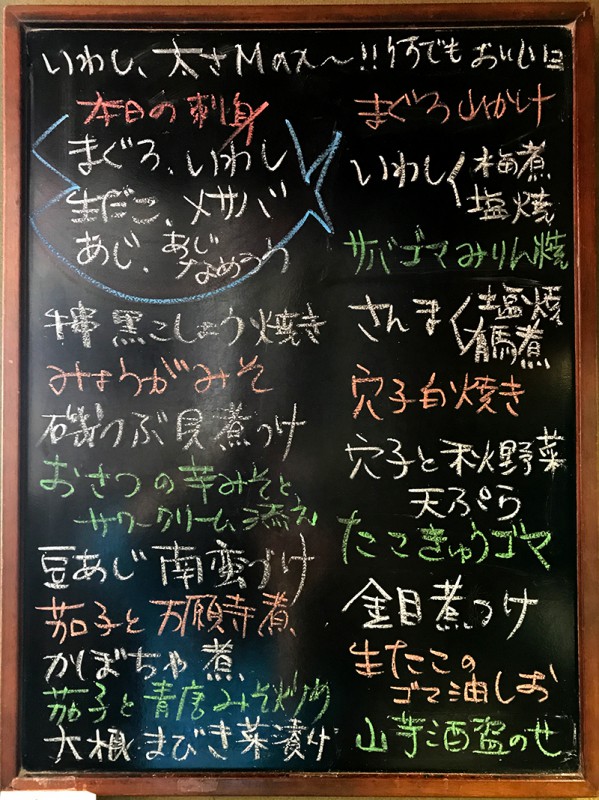 いわし、太さMax〜!!何でもおいしい
本日の刺身
まぐろ、いわし
生だこ、〆サバ
あじ、あじなめろう
黒こしょう焼き
みょうがみそ
磯つぶ貝煮つけ
おさつの辛みそと、
サワークリーム添え
豆あじ南蛮づけ
茄子と万願寺煮
かぼちゃ煮
茄子と青唐みそ炒め
大根まびき菜漬け
まぐろ山かけ
いわしく梅煮
塩焼
サバゴマみりん焼
さんまく塩焼
有馬煮
穴子白焼き
穴子と秋野菜
天ぷら
たこきゅうゴマ
金目煮つけ
生たこの
ゴマ油しお
山芋酒盗のせ